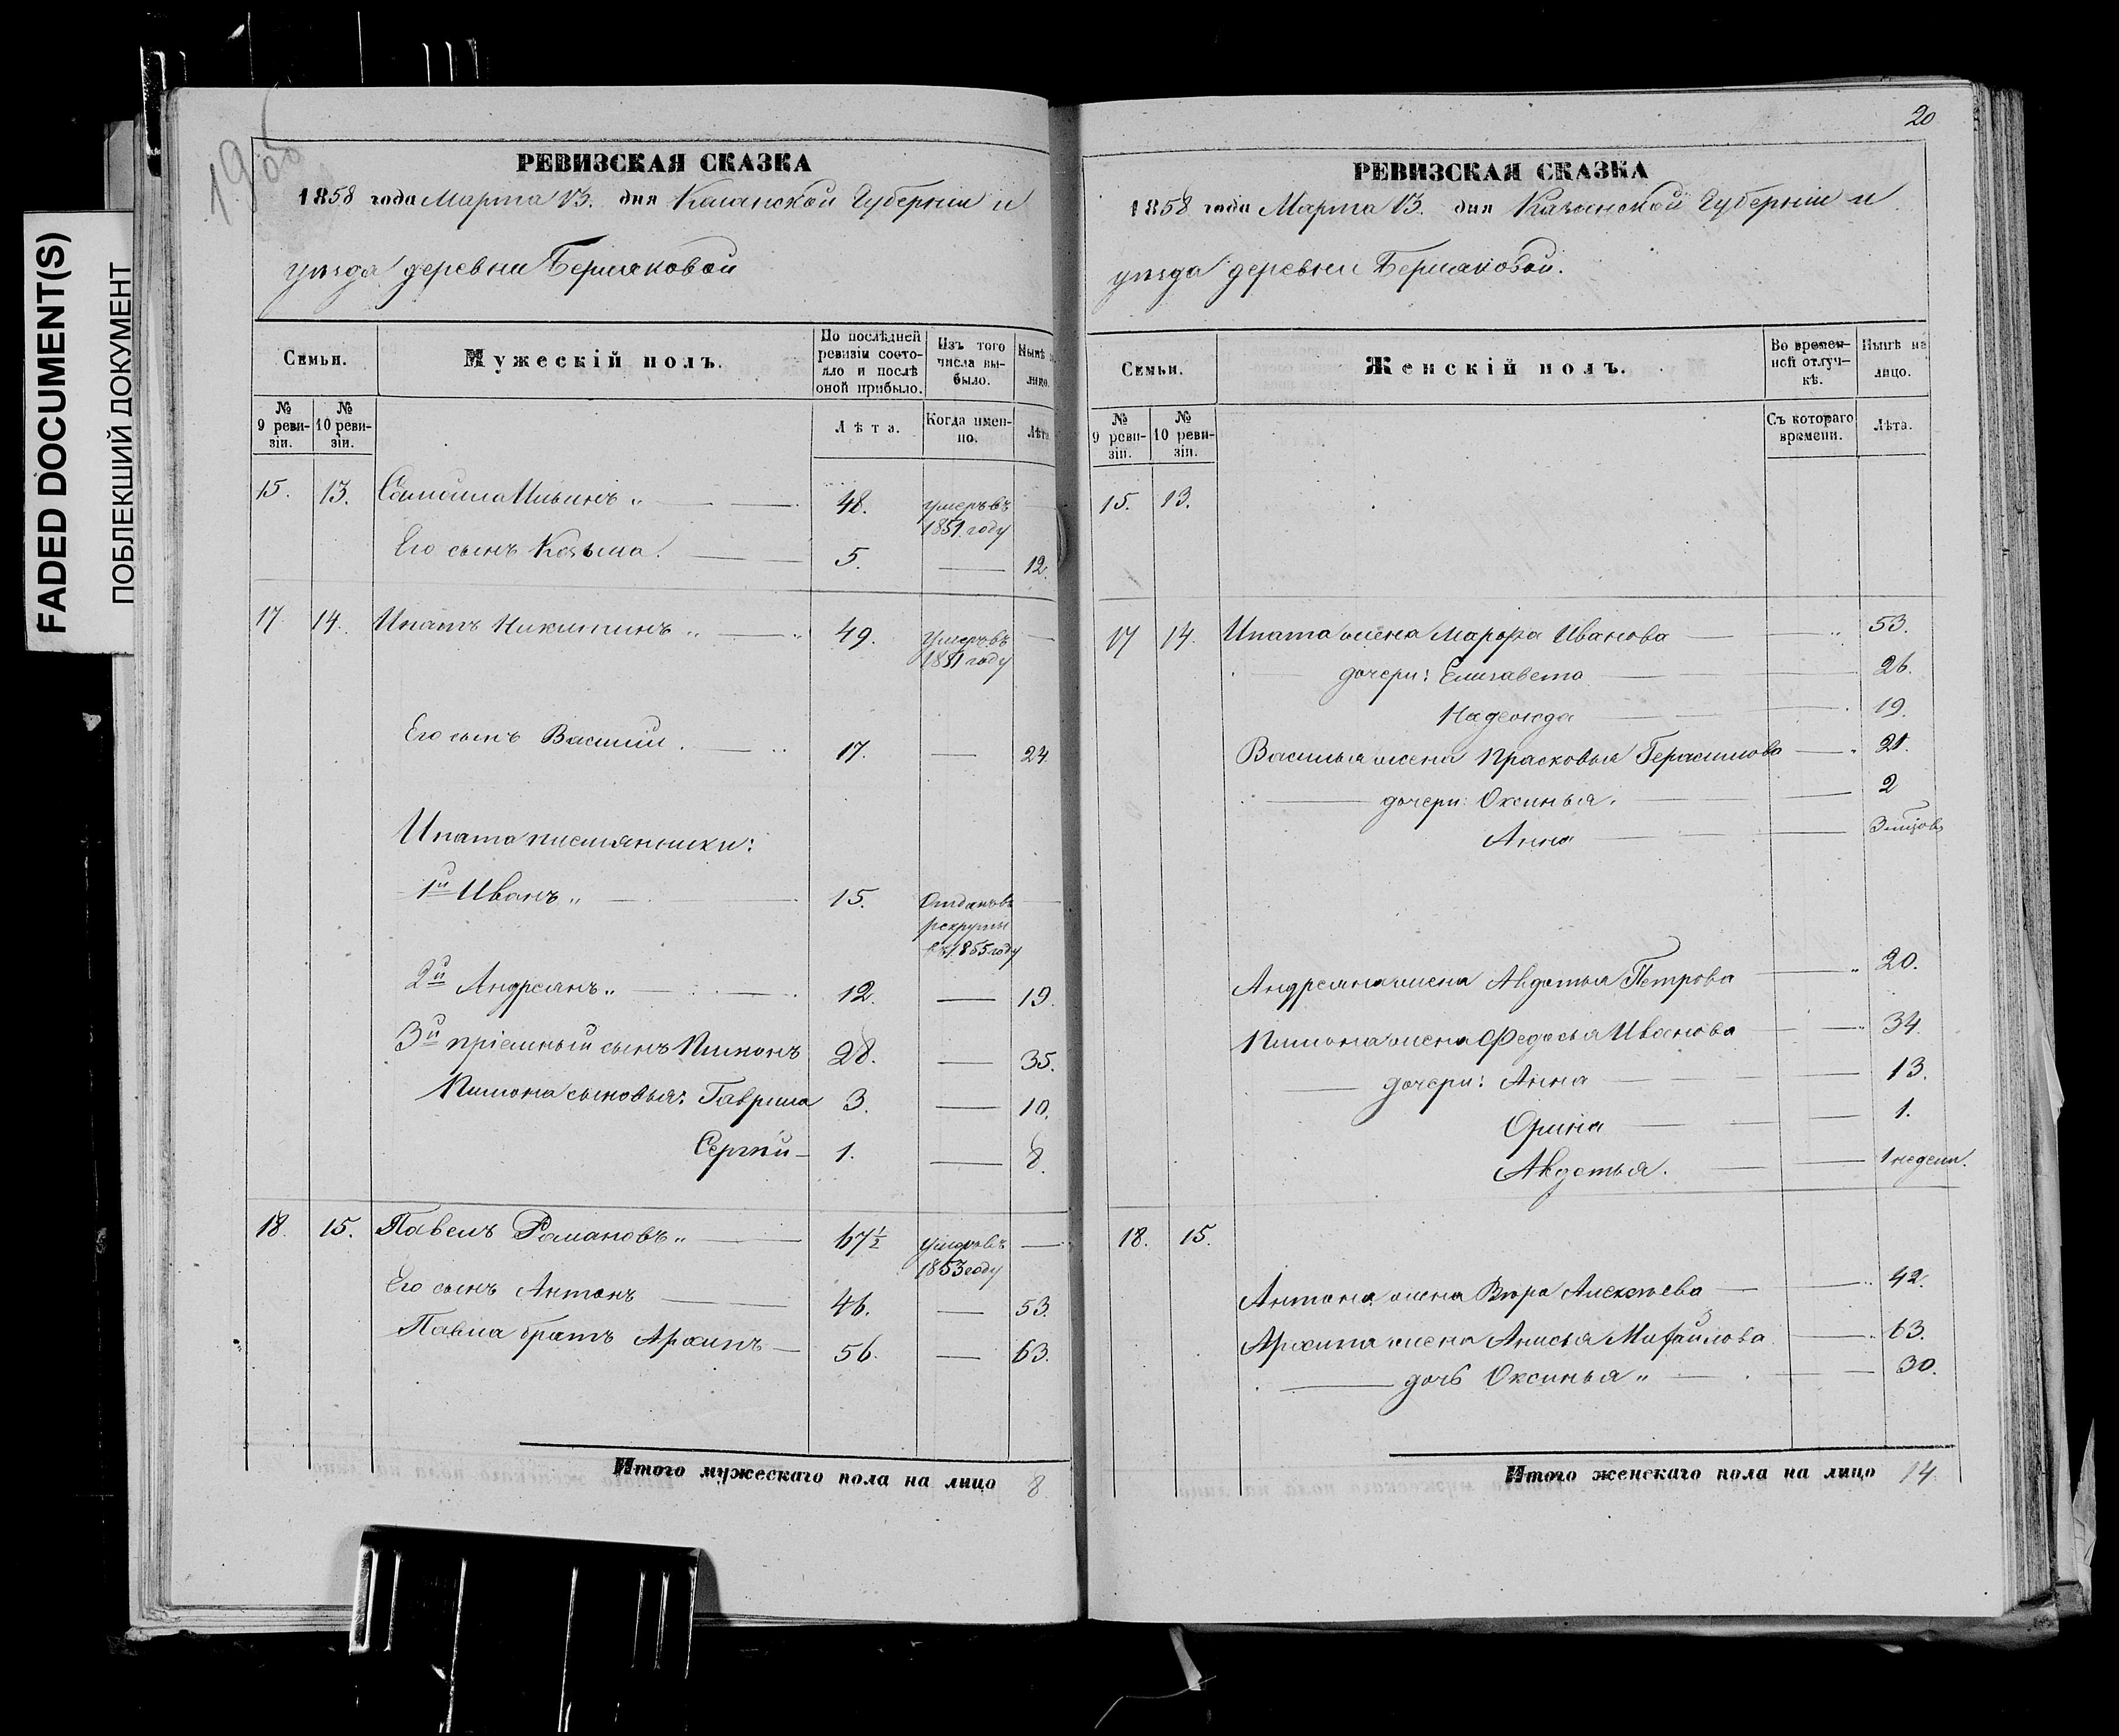 FADED DOCUMENT(S)
ПОБЛЕКШИЙ ДОКУМЕНТ
РЕВИЗСКАЯ СКАЗКА
1858 года Марта 13. дня Казанской Губерніи и
уѣзда деревни Бермяковой
Семьи. Мужескій полъ. По послѣдней ревизіи состояло и послѣ оной прибыло. Изъ того числа выбыло. Нынѣ на лицо.
№ 9 ревизіи. № 10 ревизіи. Лѣта. Когда именно. Лѣта
15. 13. Ильинъ 48. умеръ въ 1851 году
Его сынъ Козьма. 5. 12.
17 14. Ипатъ Никитинъ 49. Умеръ въ 1851 году
Его сынъ Василій. 17. 24.
Ипата племянники:
1й Иванъ 15. Отданъ въ рекруты въ 1855 году
2й Андреянъ 12. 19.
3й пріемный сынъ Пимонъ 28. 35.
Пимона сыновья: Гаврила 3. 10.
Сергѣй 1. 8.
18. 15. Павелъ Романовъ 67½ умеръ въ 1853 году
Его сынъ Антонъ 46. 53.
Павла братъ Архипъ 56. 63.
Итого мужескаго пола на лицо 8
20
РЕВИЗСКАЯ СКАЗКА
1858 года Марта 13. дня Казанской Губерніи и
уѣзда деревни Бермяковой.
Семьи. Женскій полъ. Во временной отлучкѣ. Нынѣ на лицо.
№ 9 ревизіи. № 10 ревизіи. Съ котораго времени. Лѣта.
15. 13.
17 14. Ипата жена Марфа Иванова 53.
дочери: Елизавета 26.
Надежда 19.
Василья жена Прасковья Герасимова 21.
дочери: Оксинья. 2
Анна 3 мѣсяцов
Андреяна жена Авдотья Петрова 20.
Пимона жена Федосья Иванова 34.
дочери: Анна 13.
Орина 1.
Авдотья. 1 недели.
18. 15.
Антона жена Вѣра Алексѣева 42.
Архипа жена Анисья Михайлова 63.
дочь Оксинья 30.
Итого женскаго пола на лицо 14